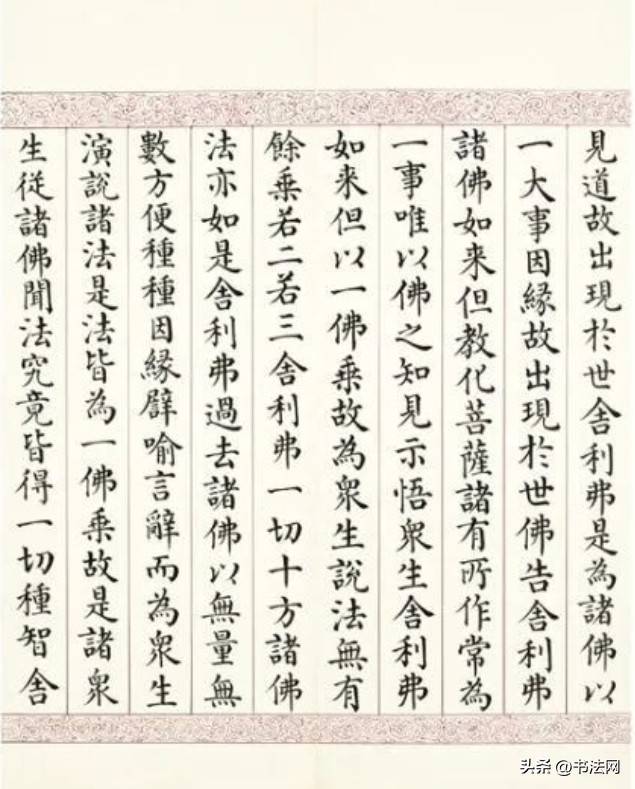 見道故出現於世舍利弗是為諸佛以
一大事因緣故出現於世佛告舍利弗
諸佛如来但教化菩薩諸有所作常為
一事唯以佛之知見示悟衆生舍利弗
如来但以一佛乗故為衆生說法無有
餘乗若二若三舍利弗一切十方諸佛
法亦如是舍利弗過去諸佛以無量無
數方便種種因緣譬喻言辭而為衆生
演說諸法是法皆為一佛乗故是諸衆
生從諸佛聞法究竟皆得一切種智舍
头条 @书法网